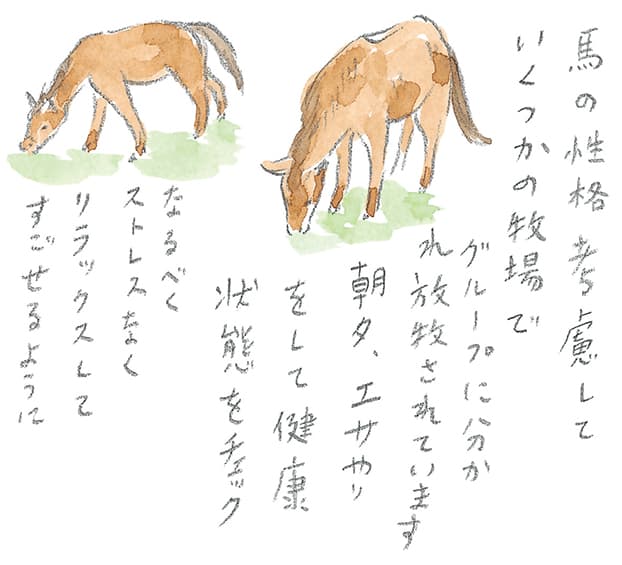 馬の性格考慮して
いくつかの牧場で
グループに分か
れ放牧されています
朝夕、エサやり
をして健康
状態をチェック
なるべく
ストレスなく
リラックスして
すごせるように